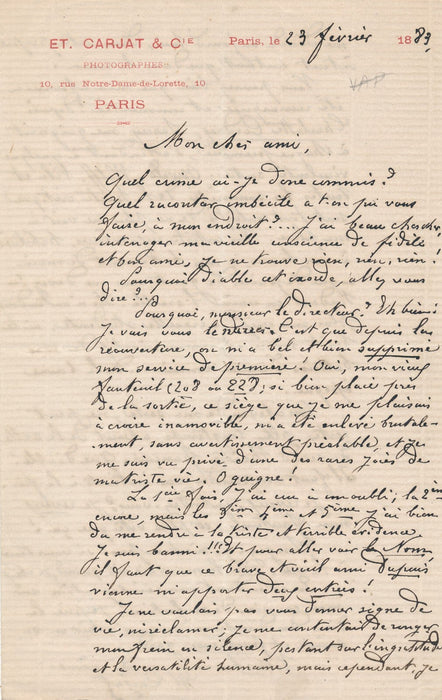 ET. CARJAT & CIE
PHOTOGRAPHES
10, rue Notre-Dame-de-Lorette, 10
PARIS
Paris, le 23 février 1883
VAP
Mon cher ami,
Quel crime ai-je donc commis?
Quel racontar imbécile a-t-on pu vous
faire, à mon endroit?... J'ai beau chercher,
interroger ma vieille conscience de fidèle
et bon ami, je ne trouve rien, rien, rien!
Pourquoi diable cet exorde, allez vous
dire?...
Pourquoi, monsieur le directeur? Eh bien!
Je vais vous le dire. C'est que depuis la
réouverture, on m'a bel et bien supprimé
mon service de première! Oui, mon vieux
fauteuil (203 ou 223), si bien placé près
de la sortie, ce siège que je me plaisais
à croire inamovible, m'a été enlevé brutale-
-ment, sans avertissement préalable et je
me suis vu privé d'une des rares joies de
ma triste vie. O guigne!
La 1ère fois, j'ai cru à un oubli; la 2ème
encore, mais les 3ème 4ème et 5ème j'ai bien
dû me rendre à la triste et terrible évidence.
Je suis banni!!! Et pour aller voir
il faut que ce brave et vieil ami Dupuis
vienne m'apporter deux entrées!
Je ne voulais pas vous donner signe de
vie, ni réclamer; je me contentais de ronger
mon frein en silence, pestant sur l'ingratitude
et la versatilité humaine, mais cependant, je